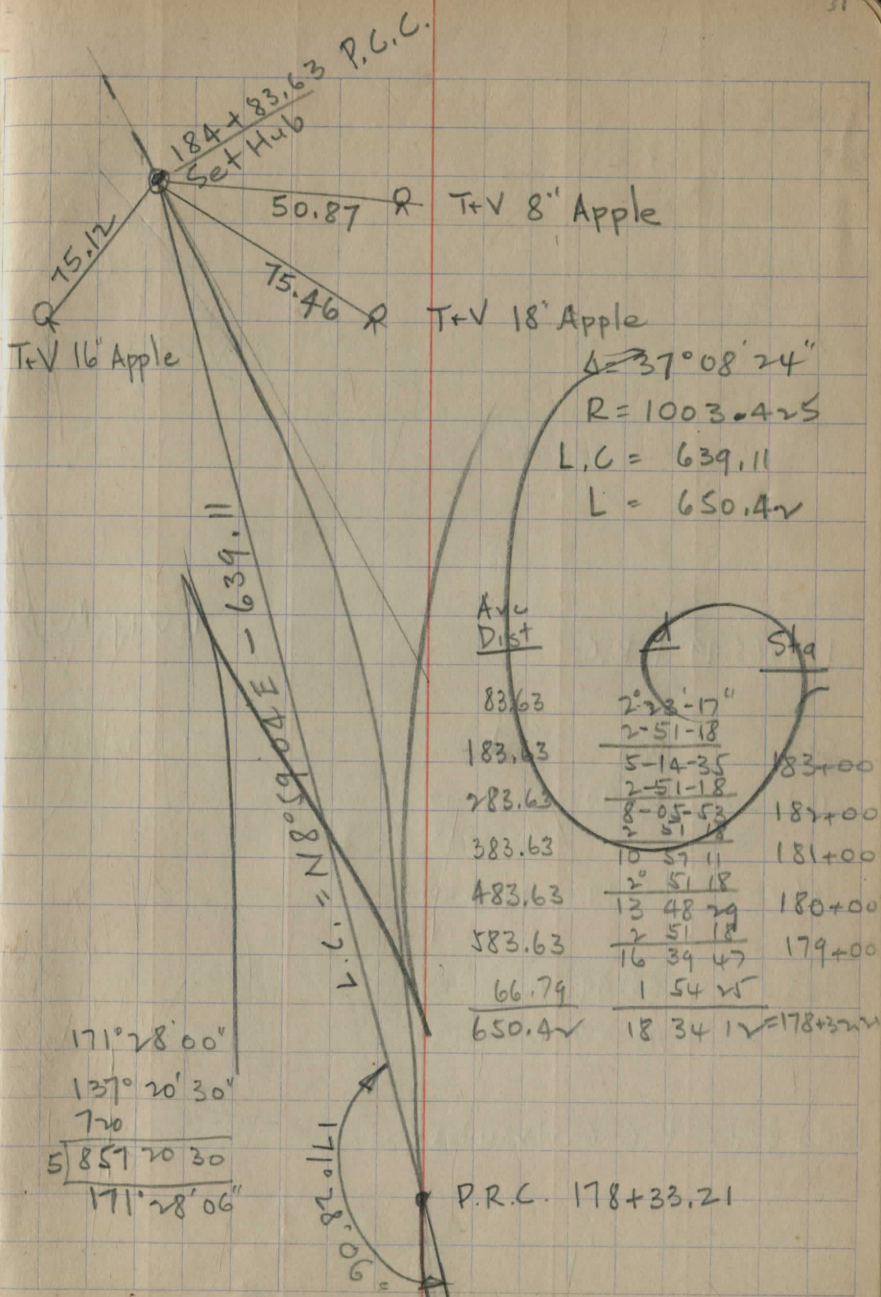 31
184+83.63 P.C.C.
Set Hub
50.87
T+V 8" Apple
75.12
75.46
T+V 18" Apple
T+V 16" Apple
Δ=37°08'24"
R=1003.425
L.C = 639.11
L = 650.42
L.C. = N8°59'04E - 639.11
Arc Dist d Sta
83.63 2°-23'-17"
2-51-18
183.63 5-14-35 183+00
2-51-18
283.63 8-05-53 182+00
2 51 18
383.63 10 57 11 181+00
2° 51 18
483.63 13 48 29 180+00
2 51 18
583.63 16 39 47 179+00
66.79 1 54 25
650.42 18 34 12 =178+33.21
171°28'00"
137° 20' 30"
720
5 857 20 30
171°28'06"
171°28'06"
P.R.C. 178+33.21